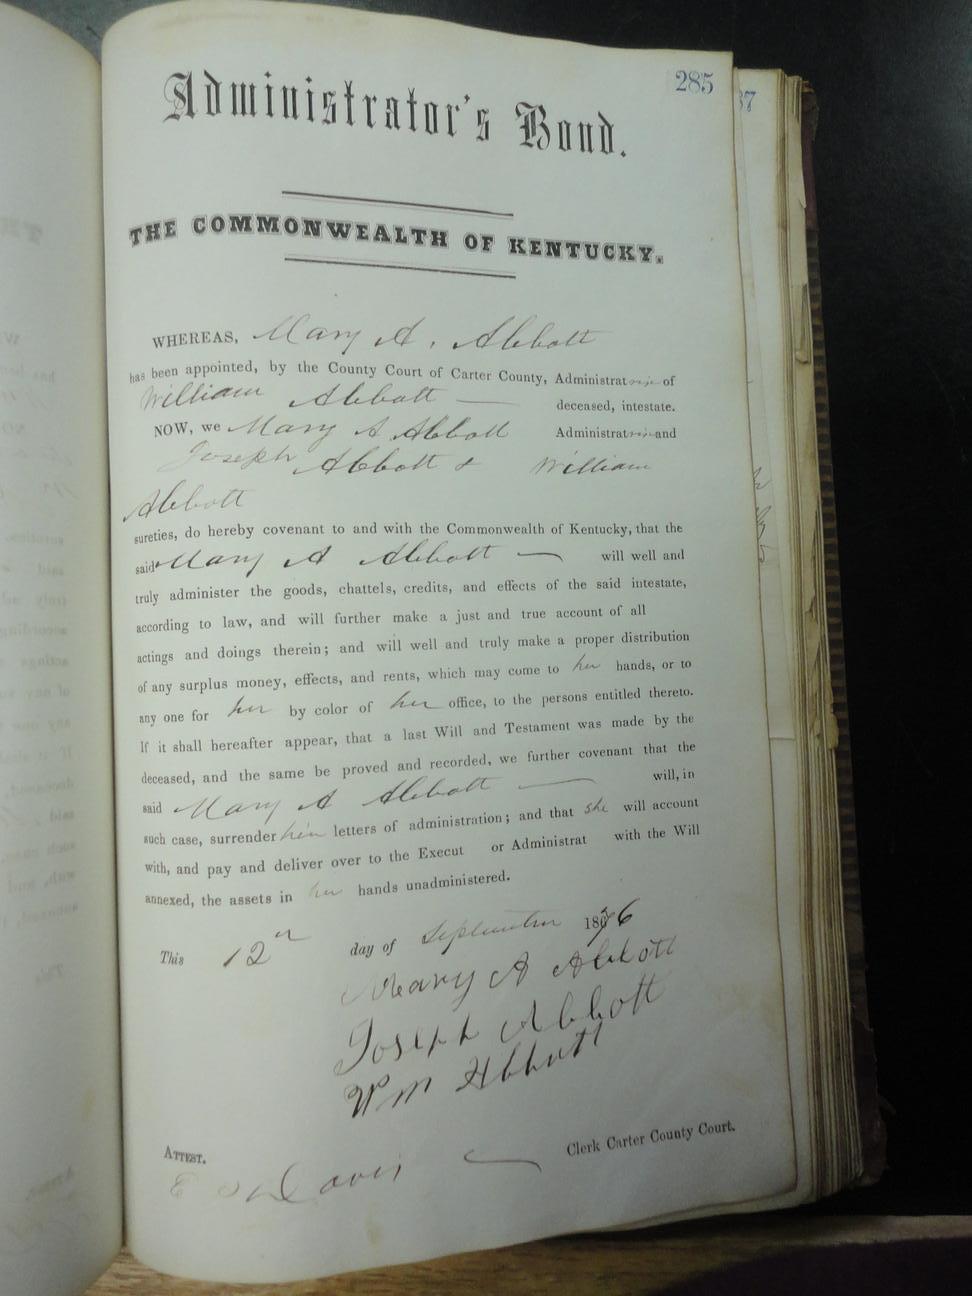 285
Administrator's Bond.
THE COMMONWEALTH OF KENTUCKY.
WHEREAS, Mary A. Abbott
has been appointed, by the County Court of Carter County, Administratrix of
William Abbott — deceased, intestate.
NOW, we Mary A Abbott Administratrix and
Joseph Abbott & William
Abbott
sureties, do hereby covenant to and with the Commonwealth of Kentucky, that the
said Mary A Abbott — will well and
truly administer the goods, chattels, credits, and effects of the said intestate,
according to law, and will further make a just and true account of all
actings and doings therein; and will well and truly make a proper distribution
of any surplus money, effects, and rents, which may come to her hands, or to
any one for her by color of her office, to the persons entitled thereto.
If it shall hereafter appear, that a last Will and Testament was made by the
deceased, and the same be proved and recorded, we further covenant that the
said Mary A Abbott — will, in
such case, surrender her letters of administration; and that she will account
with, and pay and deliver over to the Execut or Administrat with the Will
annexed, the assets in her hands unadministered.
This 12 day of September 1876
Mary A Abbott
Joseph Abbott
Wm Abbott
ATTEST.
Davis — Clerk Carter County Court.